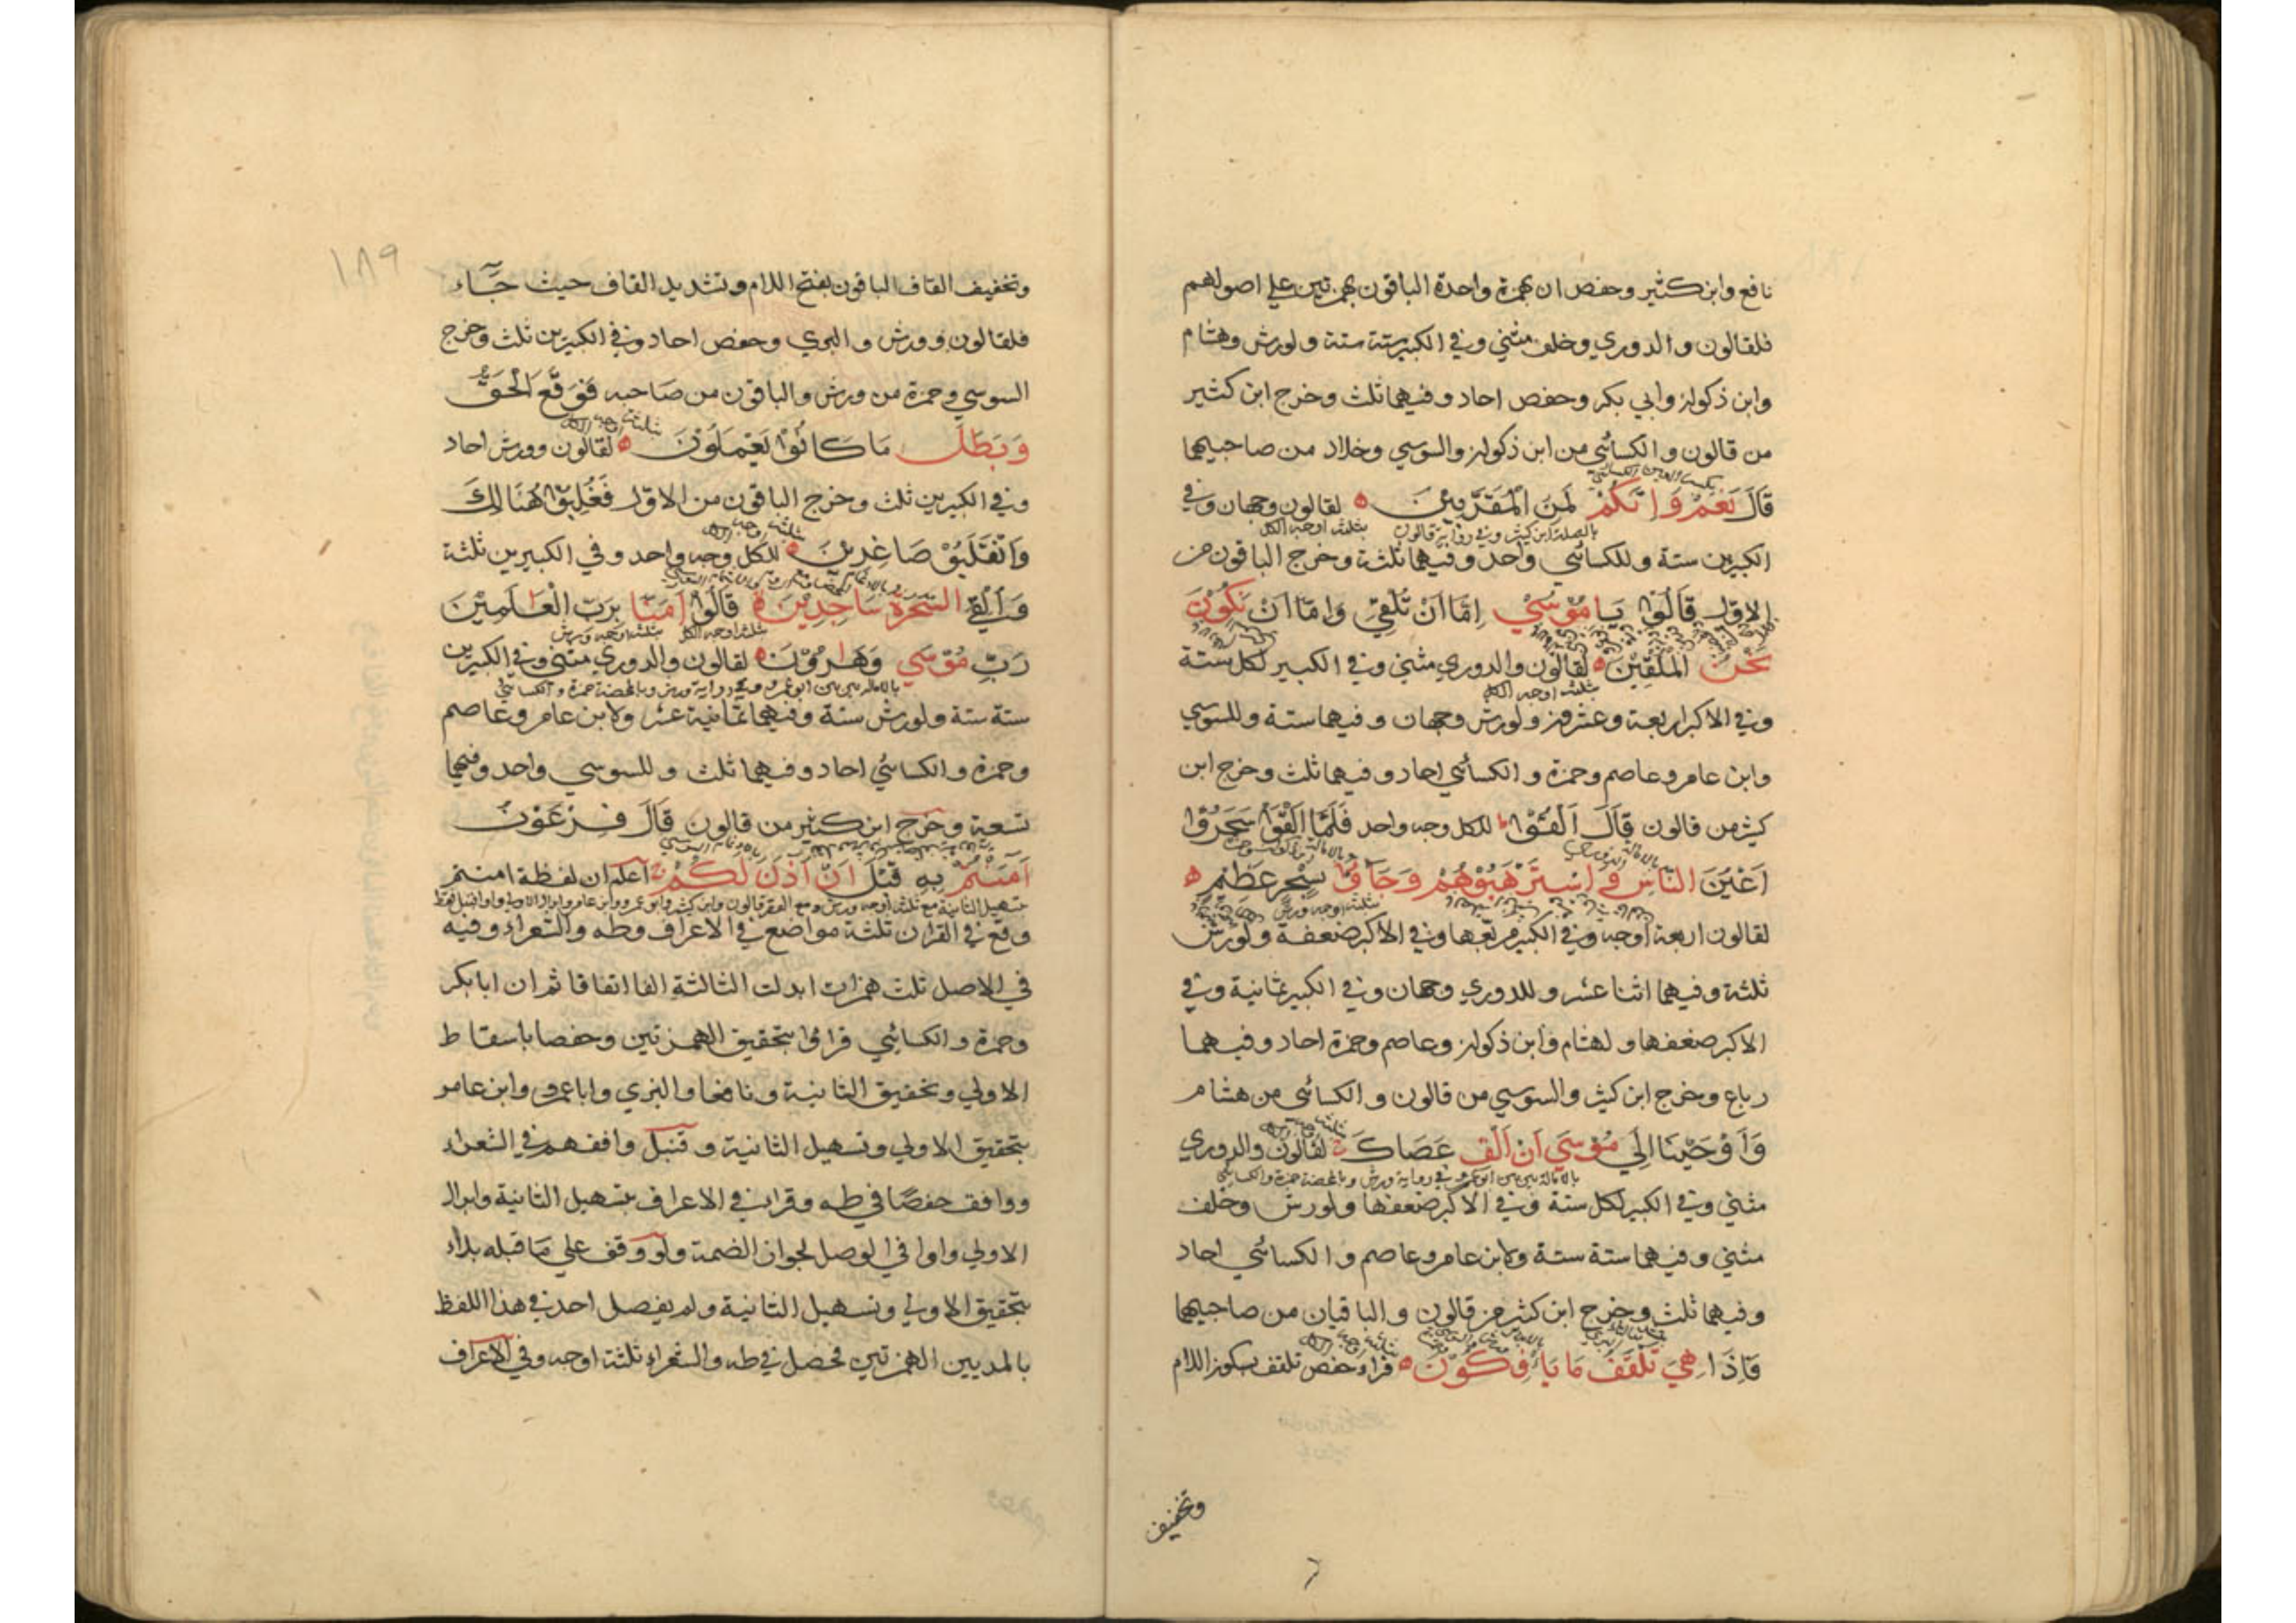 نافع وابن كثير وحفص ان بهمزة واحدة الباقون بهمزتين علي اصولهم
فلقالون والدوري وخلف مثني وفي الكبير ستة ستة ولورش وهشام
وابن ذكوان وابي بكر وحفص احاد وفيهما ثلث وخرج ابن كثير
من قالون والكسائي من ابن ذكوان والسوسي وخلاد من صاحبيهما
بكسر العين الكسائي
قَالَ نَعَمْ وَاِنَّكُمْ لَمِنَ الْمُقَرَّبِيْنَ لقالون وجهان وفي
بالصلة ابن كثير وفي رواية قالون بثلثة اوجه الكل
الكبيرين ستة وللكسائي واحد وفيهما ثلثة وخرج الباقون من
الاول قَالُوْا يَا مُوْسٰي اِمَّا اَنْ تُلْقِيَ وَاِمَّا اَنْ نَكُوْنَ
نَحْنُ الْمُلْقِيْنَ لقالون والدوري مثني وفي الكبير لكل ستة
بثلثة اوجه الكل
وفي الاكبر اربعة وعشرون ولورش وجهان وفيهما ستة وللسوسي
وابن عامر وعاصم وحمزة والكسائي احاد وفيهما ثلث وخرج ابن
كثير من قالون قَالَ اَلْقُوْا للكل وجه واحد فَلَمَّا اَلْقَوْا سَحَرُوْا
اَعْيُنَ النَّاسِ وَاسْتَرْهَبُوْهُمْ وَجَاؤُا بِسِحْرٍ عَظِيْمٍ
لقالون اربعة اوجه وفي الكبير مربعها وفي الاكبر ضعفه ولورش
ثلثة وفيهما اثنا عشر وللدوري وجهان وفي الكبير ثمانية وفي
الاكبر ضعفها ولهشام وابن ذكوان وعاصم وحمزة احاد وفيهما
رباع وخرج ابن كثير والسوسي من قالون والكسائي من هشام
وَاَوْحَيْنَا اِلٰي مُوْسٰي اَنْ اَلْقِ عَصَاكَ لقالون والدوري
بالامالة بين بين ابو عمرو وفي رواية ورش وبالمحضة حمزة والكسائي
مثني وفي الكبير لكل ستة وفي الاكبر ضعفها ولورش وخلف
مثني وفيهما ستة ستة ولابن عامر وعاصم والكسائي احاد
وفيهما ثلث وخرج ابن كثير من قالون والباقيان من صاحبيهما
فَاِذَا هِيَ تَلْقَفُ مَا يَأْفِكُوْنَ قراء حفص تلقف بسكون اللام
وتخفيف
١٨٩
وتخفيف القاف الباقون بفتح اللام وتشديد القاف حيث جَآء
فلقالون وورش والبزي وحفص احاد وفي الكبيرين ثلث وخرج
السوسي وحمزة من ورش والباقون من صاحبه فَوَقَعَ الْحَقُّ
وَبَطَلَ مَا كَانُوْا يَعْمَلُوْنَ لقالون وورش احاد
وفي الكبيرين ثلث وخرج الباقون من الاول فَغُلِبُوْا هُنَالِكَ
وَانْقَلَبُوْا صَاغِرِيْنَ للكل وجه واحد وفي الكبيرين ثلثة
وَاُلْقِيَ السَّحَرَةُ سَاجِدِيْنَ قَالُوْا اٰمَنَّا بِرَبِّ الْعَالَمِيْنَ
بثلثة اوجه الكل بثلثة اوجه ورش
رَبِّ مُوْسٰي وَهَارُوْنَ لقالون والدوري مثني وفي الكبيرين
بالامالة بين بين ابو عمرو وفي رواية ورش وبالمحضة حمزة والكسائي
ستة ستة ولورش ستة وفيهما ثمانية عشر ولابن عامر وعاصم
وحمزة والكسائي احاد وفيهما ثلث وللسوسي واحد وفيهما
تسعة وخرج ابن كثير من قالون قَالَ فِرْعَوْنُ
اٰمَنْتُمْ بِهٖ قَبْلَ اَنْ اٰذَنَ لَكُمْ اعلم ان لفظة امنتم
وقع في القران ثلثة مواضع في الاعراف وطه والشعراء وفيه
في الاصل ثلث همزات ابدلت الثالثة الفا اتفاقا ثم ان ابا بكر
وحمزة والكسائي قراؤا بتحقيق الهمزتين وحفصا باسقاط
الاولي وتحقيق الثانية ونافعا والبزي وابا عمرو وابن عامر
بتحقيق الاولي وتسهيل الثانية وقنبل وافقهم في الشعراء
ووافق حفصًا في طه وقراء في الاعراف بتسهيل الثانية وابدال
الاولي واوا في الوصل لجوار الضمة ولو وقف علي ما قبله بداء
بتحقيق الاولي وتسهيل الثانية ولم يفصل احد في هذا اللفظ
بالمد بين الهمزتين فحصل في طه والشعراء ثلثة اوجه وفي الاعراف